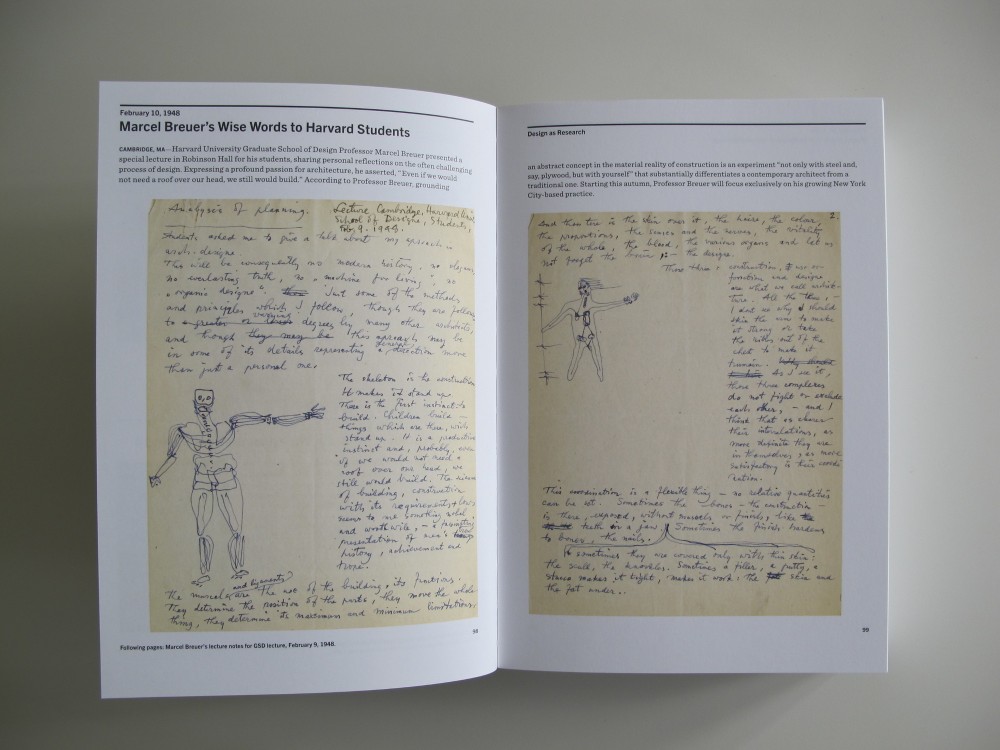 February 10, 1948
Marcel Breuer's Wise Words to Harvard Students
CAMBRIDGE, MA—Harvard University Graduate School of Design Professor Marcel Breuer presented a
special lecture in Robinson Hall for his students, sharing personal reflections on the often challenging
process of design. Expressing a profound passion for architecture, he asserted, "Even if we would
not need a roof over our head, we still would build." According to Professor Breuer, grounding
Analysis of planning.
Lecture Cambridge, Harvard
School of Designe, Students,
Febr. 9. 1948.
Students asked me to give a talk about my aproach
to designe.
This will be consequently no modern history, no slogans,
no everlasting truth, no "machine for living", no
"organic designe". Just some of the methods
and principles which I follow, though they are followed
to varying degrees by many other architects,
and though this aproach may be
in some of its details representing a direction more
then just a personal one.
The skeleton is the construction
It makes it stand up.
There is the first instinct: to
build. Children build —
things which are there, which
stand up. It is a productive
instinct and, probably, even
if we would not need a
roof over our head, we
still would build. The
of building, construction
with its requirements + laws
seems to me something nobel
and worthwile, – a
presentation of men's
history, achievement and
hope.
The muscles and ligaments are the use of the building, its functions.
They determine the position of the parts, they move the whole
thing, they determine its maximum and minimum limitations.
98
Following pages: Marcel Breuer's lecture notes for GSD lecture, February 9, 1948.
Design as Research
an abstract concept in the material reality of construction is an experiment "not only with steel and,
say, plywood, but with yourself" that substantially differentiates a contemporary architect from a
traditional one. Starting this autumn, Professor Breuer will focus exclusively on his growing New York
City-based practice.
2.
And then there is the skin over it, the haire, the colour,
the proportions, the senses and the nerves, the vitality
of the whole, the blood, the various organs and let us
not forget the brain – the designe.
These three: construction, use or
function and designe
are what we call architec-
ture. All the time,
I dont see why I should
skin the man to make
it strong or take
the ribs out of the
chest to make it
human. As I see it,
these three complexes
do not fight or exclude
each other, – and I
think that as closer
their interrelations, as
more definite they are
in themselves, as more
satisfactory is their coordi-
nation.
This coordination is a flexible thing – no relative quantities
can be set. Sometimes the bones – the construction –
is there, exposed, without muscels or finish, like
teeth in a jaw. Sometimes the finish hardens
to bones, the nails.
Sometimes they are covered only with thin skin:
the scull, the knockles. Sometimes a filler, a putty, a
stucco makes it tight, makes it work: the skin and
the fat under..
99